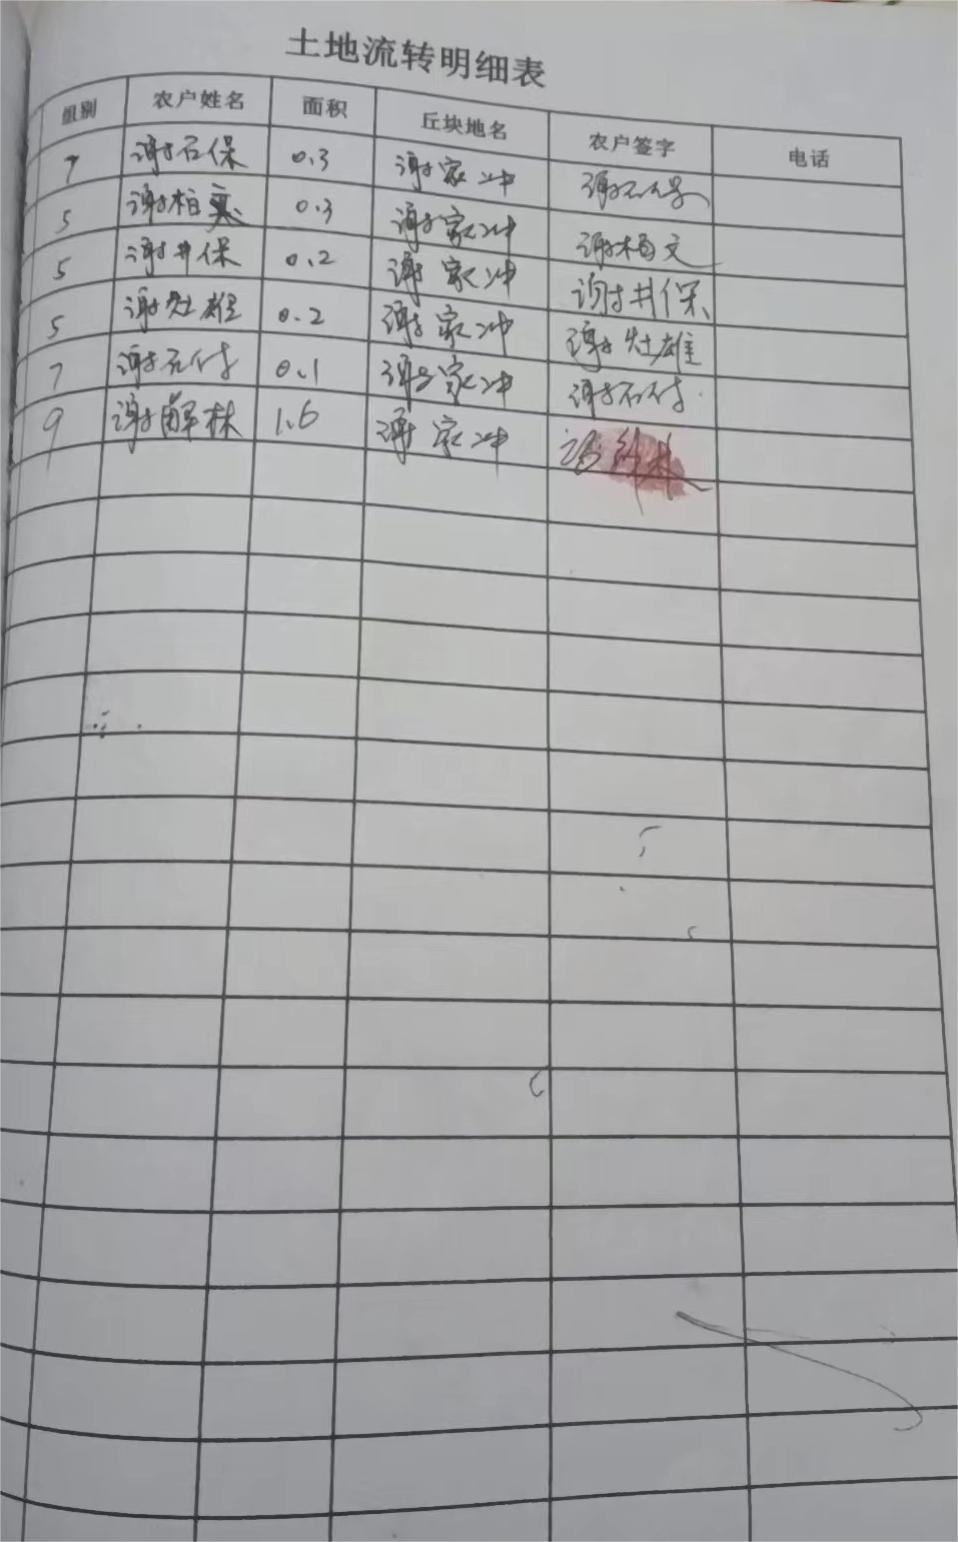 土地流转明细表
组别 农户姓名 面积 丘块地名 农户签字 电话
7 谢石保 0.3 谢家冲
5 谢柏 0.3 谢家冲 谢文
5 谢井保 0.2 谢家冲 谢井保
5 谢灶雄 0.2 谢家冲 谢灶雄
7 谢石付 0.1 谢家冲 谢石付
9 谢解林 1.6 谢家冲